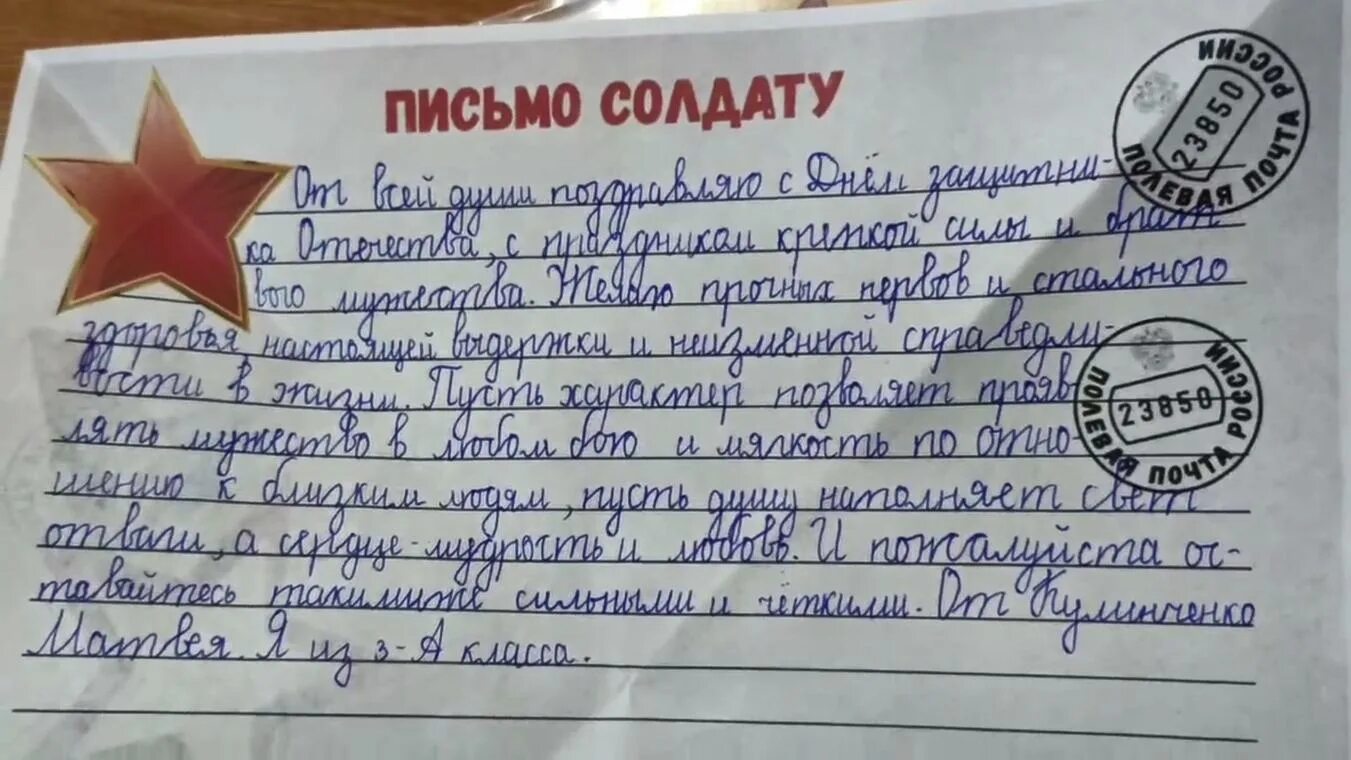 ПИСЬМО СОЛДАТУ
От всей души поздравляю с Днём защитни-
ка Отечества, с праздником крепкой силы и брат
вого мужества. Желаю прочных нервов и стального
здоровья, настоящей выдержки и неизменной справедли-
вости в жизни. Пусть характер позволяет прояв
лять мужество в любом бою и мягкость по отно-
шению к близким людям, пусть душу наполняет свет
отваги, а сердце-мудрость и любовь. И пожалуйста ос-
тавайтесь такими же сильными и чёткими. От Кулинченко
Матвея. Я из 3-А класса.
ПОЛЕВАЯ ПОЧТА РОССИИ
23850
ПОЛЕВАЯ ПОЧТА РОССИИ
23850